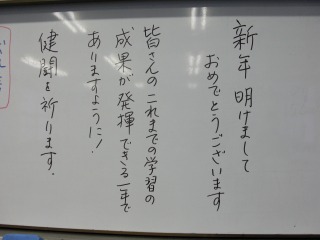 新年 明けまして
おめでとうございます
皆さんのこれまでの学習の
成果が発揮できる一年で
ありますように!
健闘を祈ります.